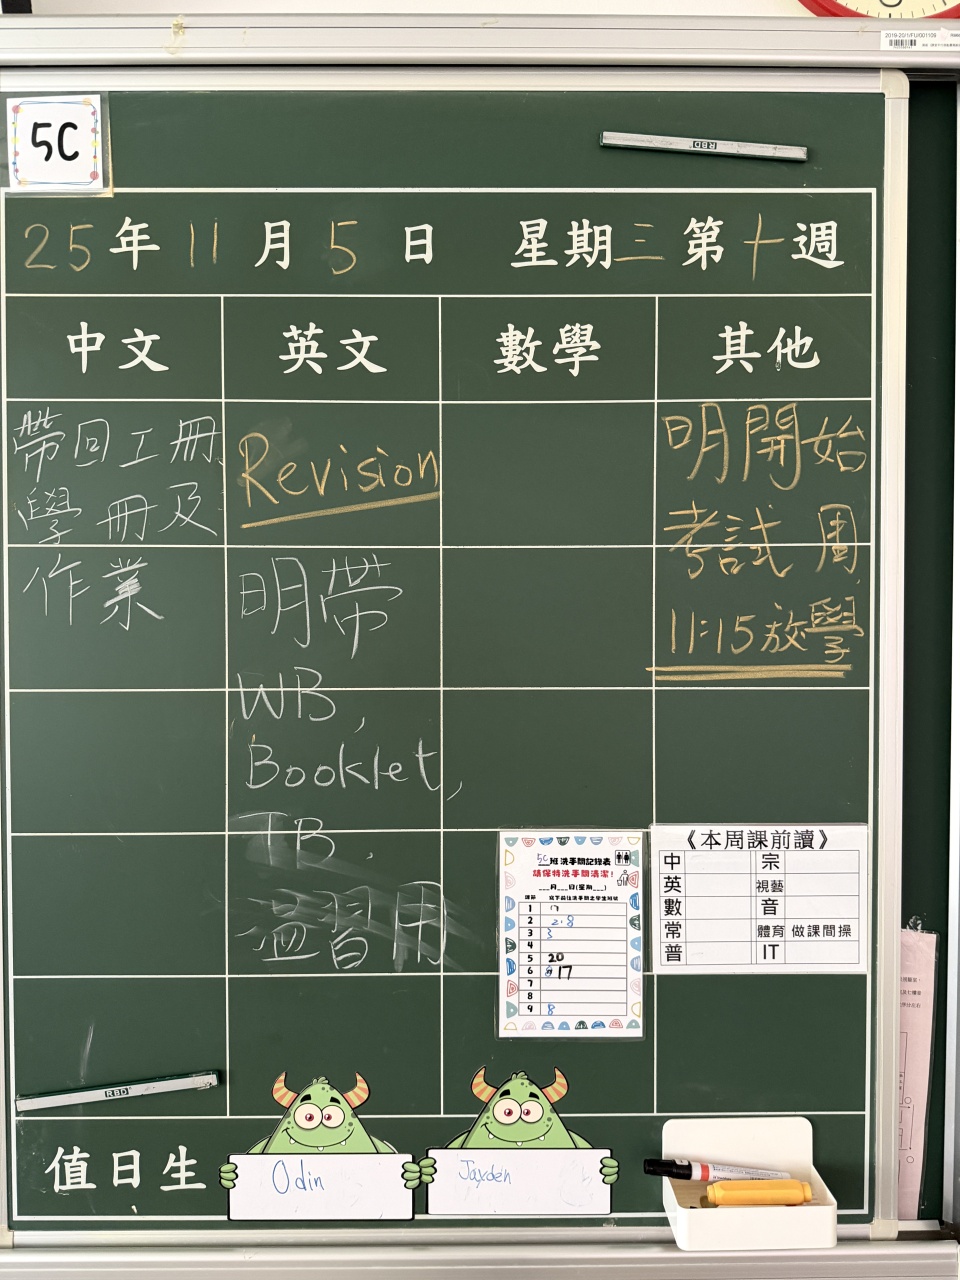 2019-20/1/FU/001109
5C
RBD
25年11月5日 星期三第十週
中文 英文 數學 其他
帶回工冊
學冊及
作業
Revision
明帶
WB,
Booklet,
TB,
溫習用
明開始
考試 周
11:15放學
5C班洗手間記錄表
請保持洗手間清潔!
___月___日(星期___)
課節 寫下前往洗手間之學生班號
1 17
2 2.8
3 3
4
5 20
6 17
7
8
9 8
《本周課前讀》
中 宗
英 視藝
數 音
常 體育 做課間操
普 IT
RBD
值日生 Odin Jayden